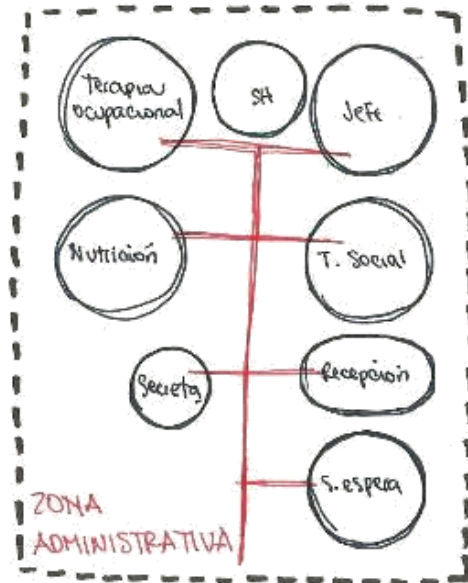 Terapia
ocupacional
SH
Jefe
Nutrición
T. Social
Secreta
Recepción
S. espera
ZONA
ADMINISTRATIVA